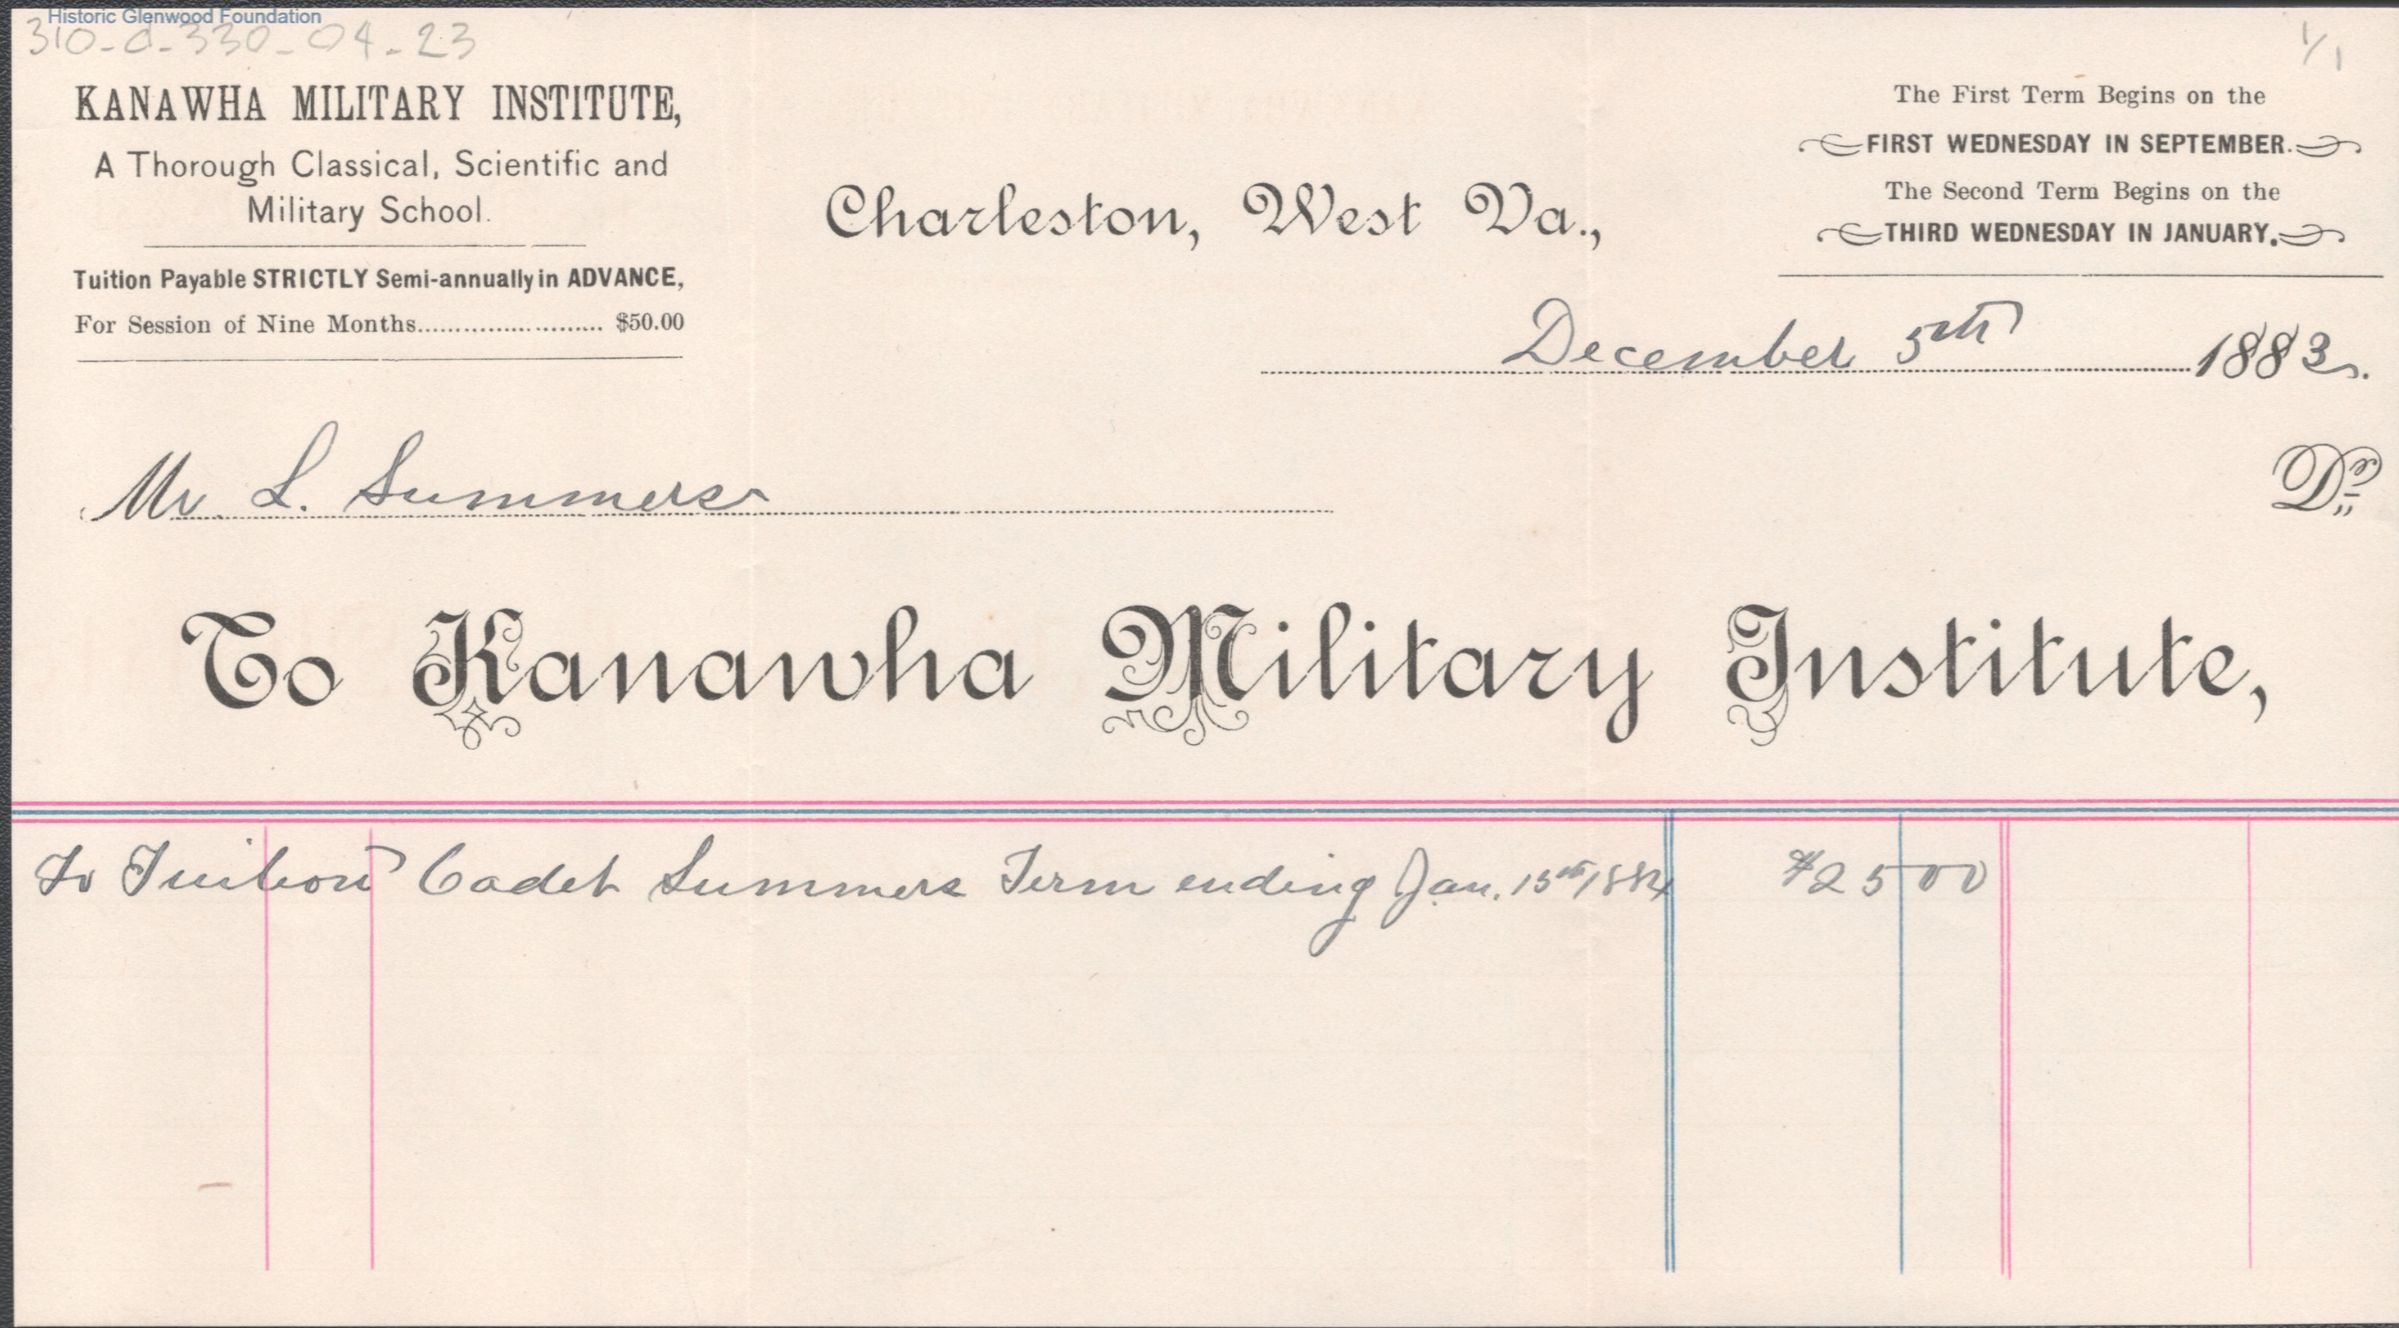 Historic Glenwood Foundation
310-d-330-04-23
1/1
KANAWHA MILITARY INSTITUTE,
A Thorough Classical, Scientific and
Military School.
Tuition Payable STRICTLY Semi-annually in ADVANCE,
For Session of Nine Months........................ $50.00
The First Term Begins on the
FIRST WEDNESDAY IN SEPTEMBER.
The Second Term Begins on the
THIRD WEDNESDAY IN JANUARY.
Charleston, West Va.,
December 5th 1883.
Mr. L. Summers
Dr.
To Kanawha Military Institute,
To Tuition Cadet Summers Term ending Jan. 15th 1884 $25 00